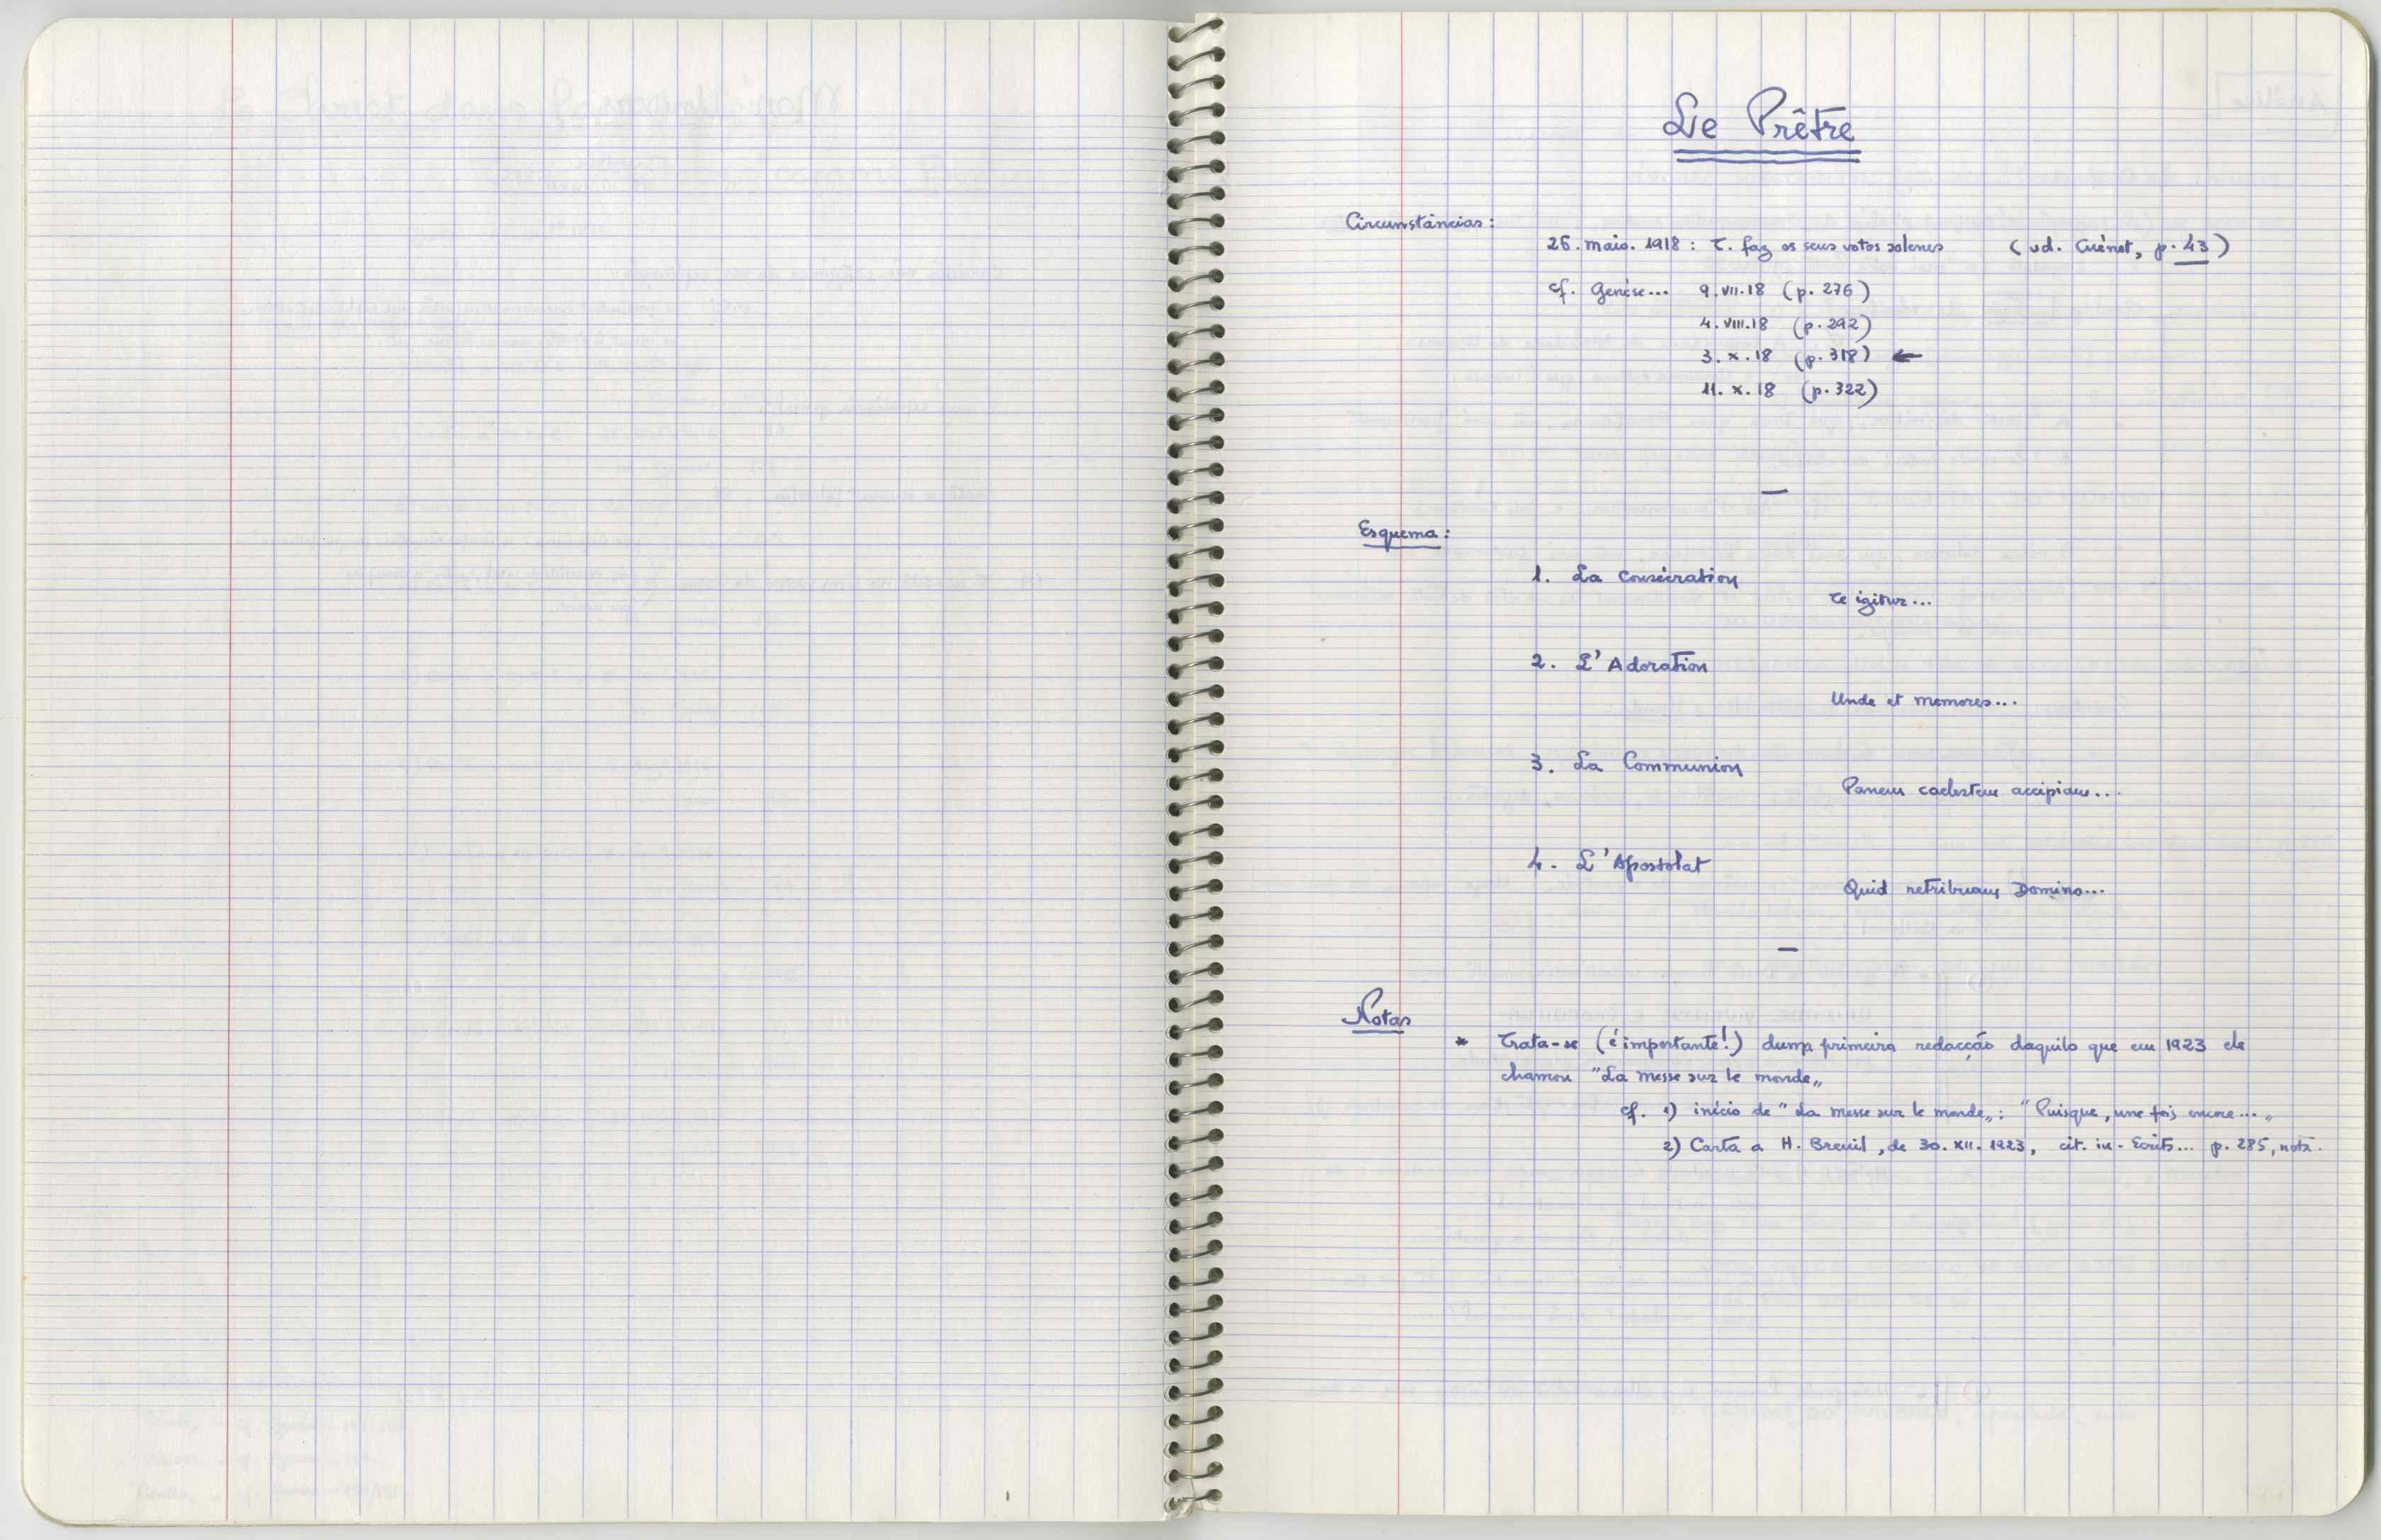 Le Prêtre
Circunstâncias:
26. maio. 1918: T. faz os seus votos solenes (vd. Cuénot, p. 43)
cf. Genèse... 9.VII.18 (p. 276)
4. VIII.18 (p. 292)
3. X. 18 (p. 318) ←
11. X. 18 (p. 322)
—
Esquema:
1. La Consécration
Te igitur...
2. L'Adoration
Unde et memores...
3. La Communion
Panem caelestem accipiam...
4. L'Apostolat
Quid retribuam Domino...
—
Notas
* Trata-se (é importante!) duma primeira redacção daquilo que em 1923 ele
chamou "La messe sur le monde„
cf. 1) início de "La messe sur le monde„: "Puisque, une fois encore...„
2) Carta a H. Breuil, de 30. XII. 1923, cit. in- Ecrits... p. 285, nota.